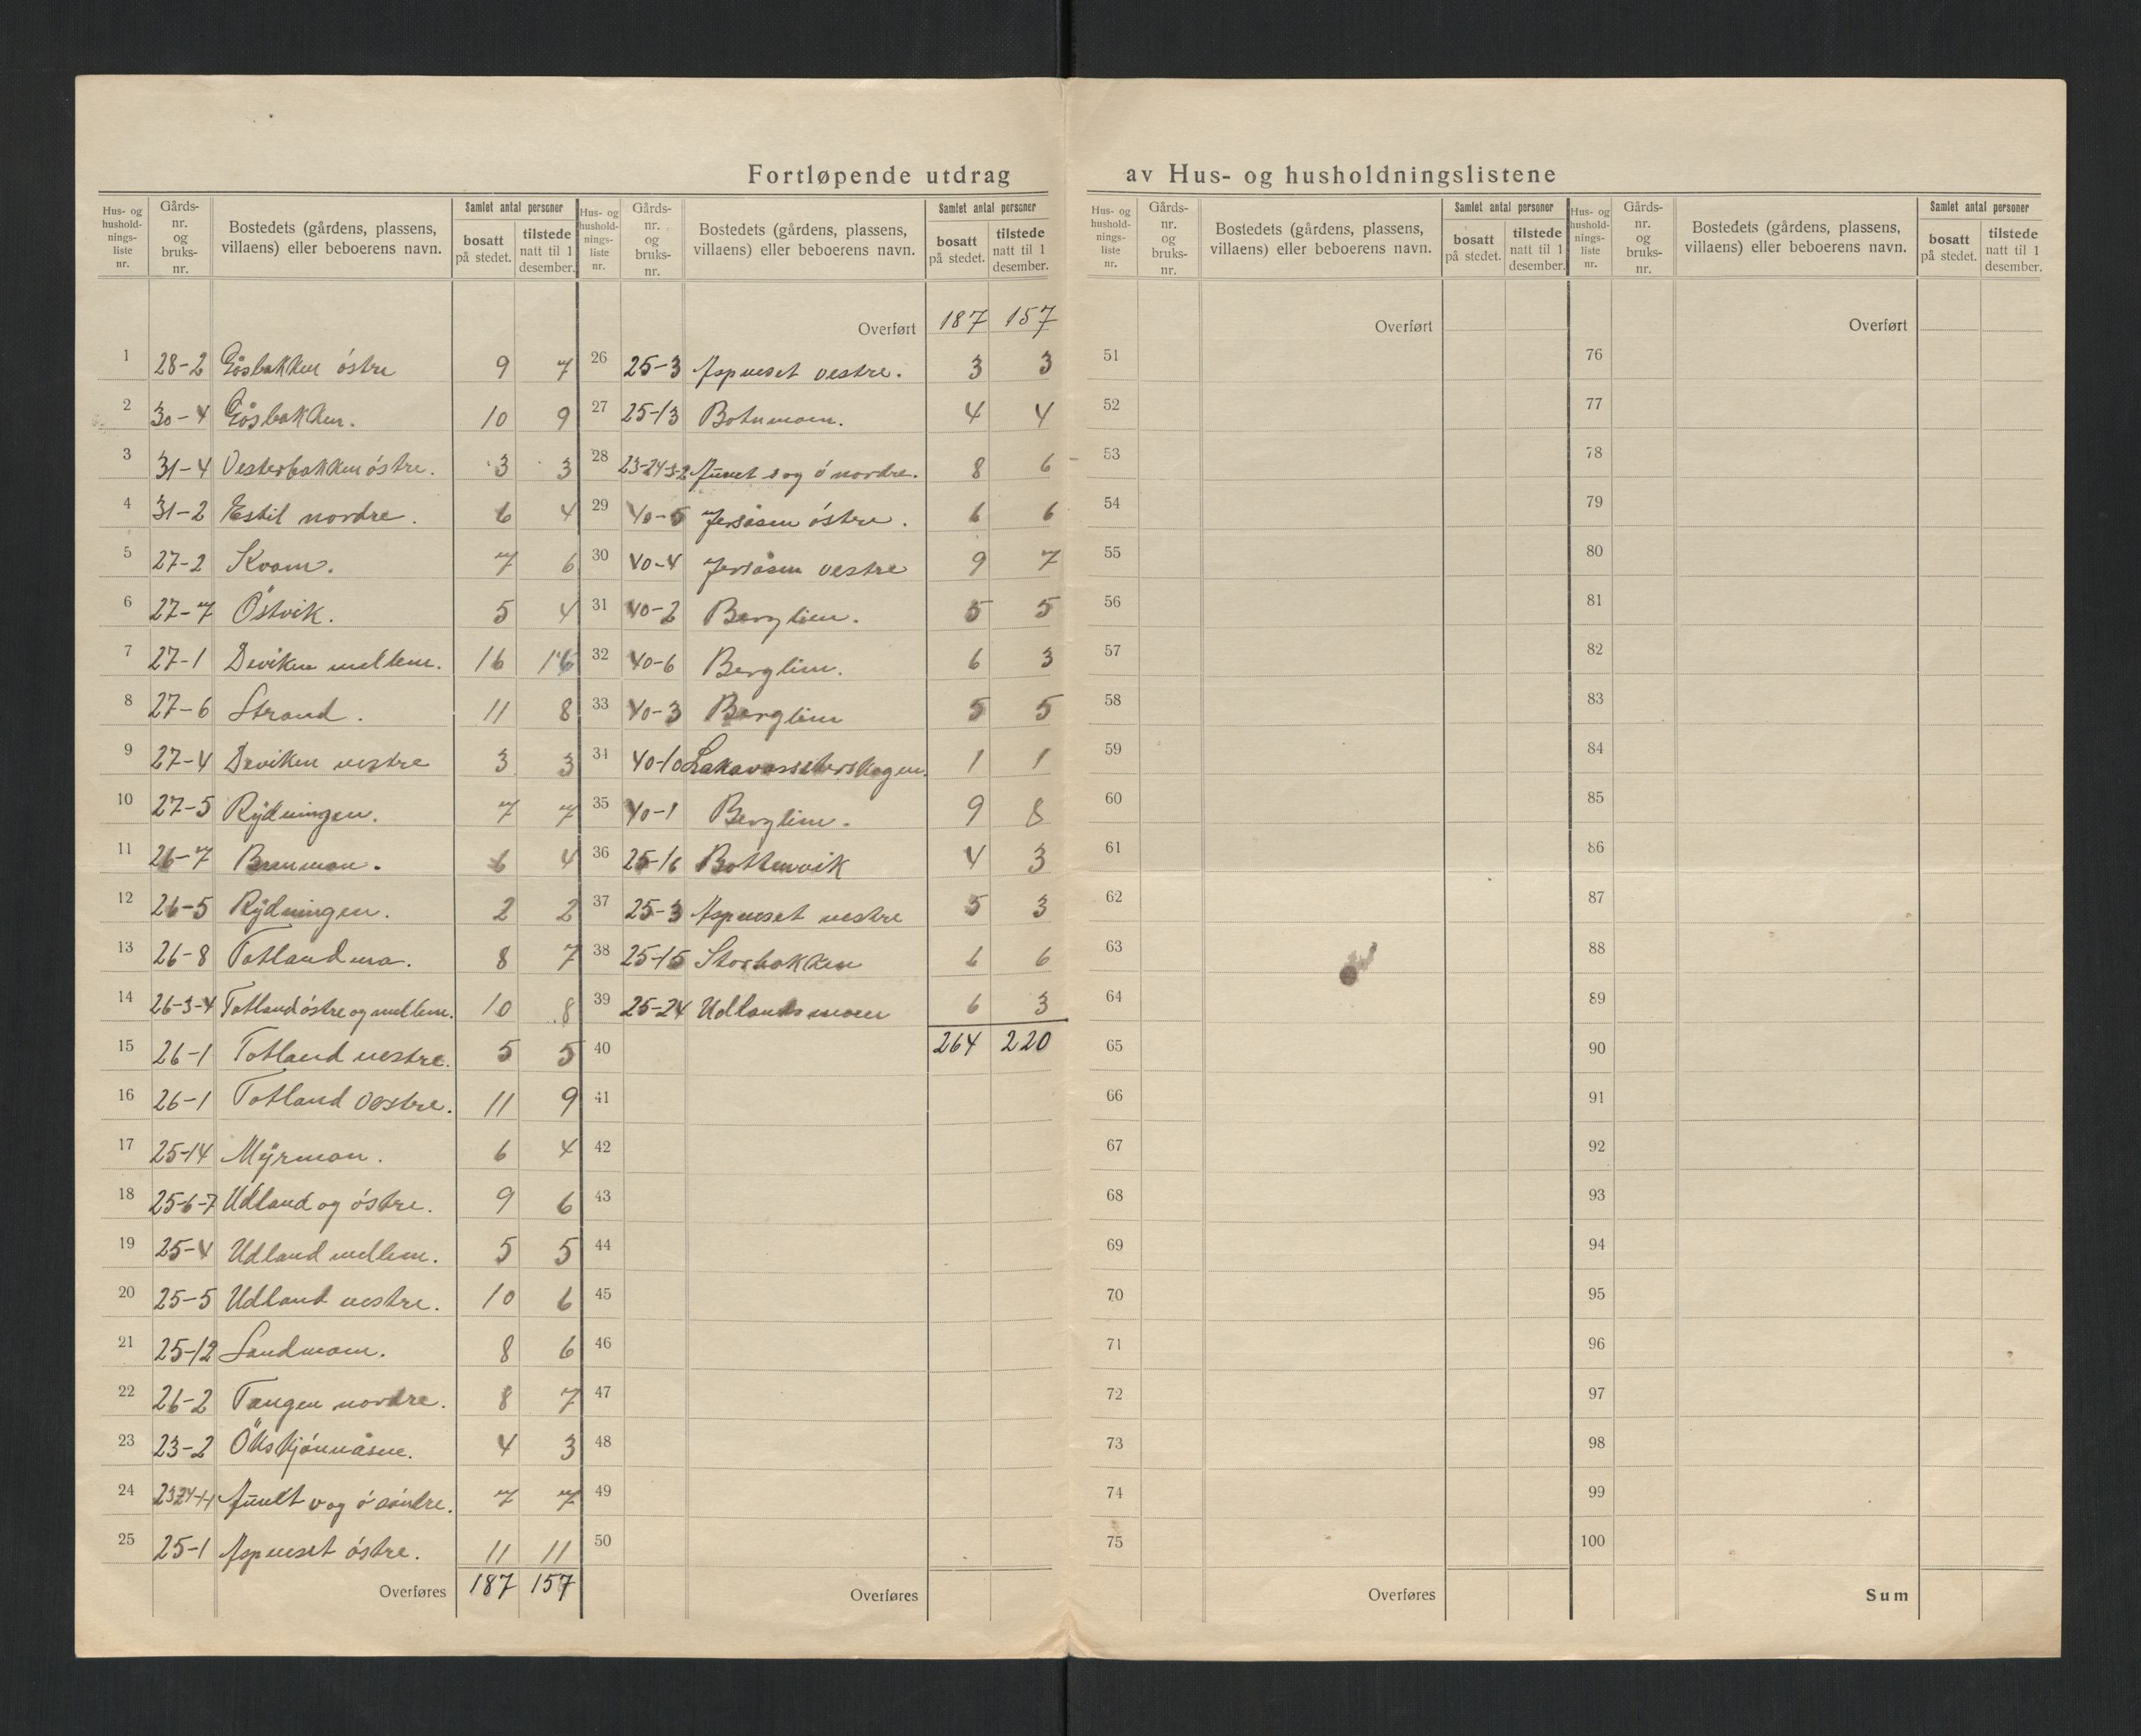 Fortløpende utdrag av Hus- og husholdningslistene
Hus- og hushold- nings- liste nr. Gårds- nr. og bruks- nr. Bostedets (gårdens, plassens, villaens) eller beboerens navn. Samlet antal personer bosatt på stedet. tilstede natt til 1 desember.
1 28-2 Gåsbakken östre 9 7
2 30-4 Gåsbakken. 10 9
3 31-4 Vesterbakken östre. 3 3
4 31-2 Estil nordre. 6 4
5 27-2 Kvam. 7 6
6 27-7 Östvik. 5 4
7 27-1 Deviken mellem. 16 16
8 27-6 Strand. 11 8
9 27-4 Deviken vestre 3 3
10 27-5 Rydningen. 7 7
11 26-7 6 4
12 26-5 Rydningen. 2 2
13 26-8 Totlandmo. 8 7
14 26-3-4 Totland östre og mellem. 10 8
15 26-1 Totland vestre. 5 5
16 26-1 Totland vestre. 11 9
17 25-14 Myrmoan. 6 4
18 25-6-7 Udland og östre. 9 6
19 25-4 Udland mellem. 5 5
20 25-5 Udland vestre. 10 6
21 25-12 Sandmoen. 8 6
22 26-2 Tangen nordre. 8 7
23 23-2 4 3
24 v og ö söndre. 7 7
25 25-1 Aspneset östre. 11 11
Overføres 187 157
Hus- og hushold- nings- liste nr. Gårds- nr. og bruks- nr. Bostedets (gårdens, plassens, villaens) eller beboerens navn. Samlet antal personer bosatt på stedet. tilstede natt til 1 desember.
Overført 187 157
26 25-3 Aspneset vestre. 3 3
27 25-13 Botnmoen. 4 4
28 og ö nordre. 8 6
29 40-5 Jersåsen östre. 6 6
30 40-4 Jersåsen vestre 9 7
31 40-2 Berglien. 5 5
32 40-6 Berglien. 6 3
33 40-3 Berglien 5 5
34 40-10 Lakavasseterskogen. 1 1
35 40-1 Berglien. 9 8
36 25-16 Bottenvik 4 3
37 25-3 Aspneset vestre 5 3
38 25-15 Storbakken 6 6
39 25-24 Udlandsmoen 6 3
40 264 220
41
42
43
44
45
46
47
48
49
50
Overføres
Hus- og hushold- nings- liste nr. Gårds- nr. og bruks- nr. Bostedets (gårdens, plassens, villaens) eller beboerens navn. Samlet antal personer bosatt på stedet. tilstede natt til 1 desember.
Overført
51
52
53
54
55
56
57
58
59
60
61
62
63
64
65
66
67
68
69
70
71
72
73
74
75
Overføres
Hus- og hushold- nings- liste nr. Gårds- nr. og bruks- nr. Bostedets (gårdens, plassens, villaens) eller beboerens navn. Samlet antal personer bosatt på stedet. tilstede natt til 1 desember.
Overført
76
77
78
79
80
81
82
83
84
85
86
87
88
89
90
91
92
93
94
95
96
97
98
99
100
Sum